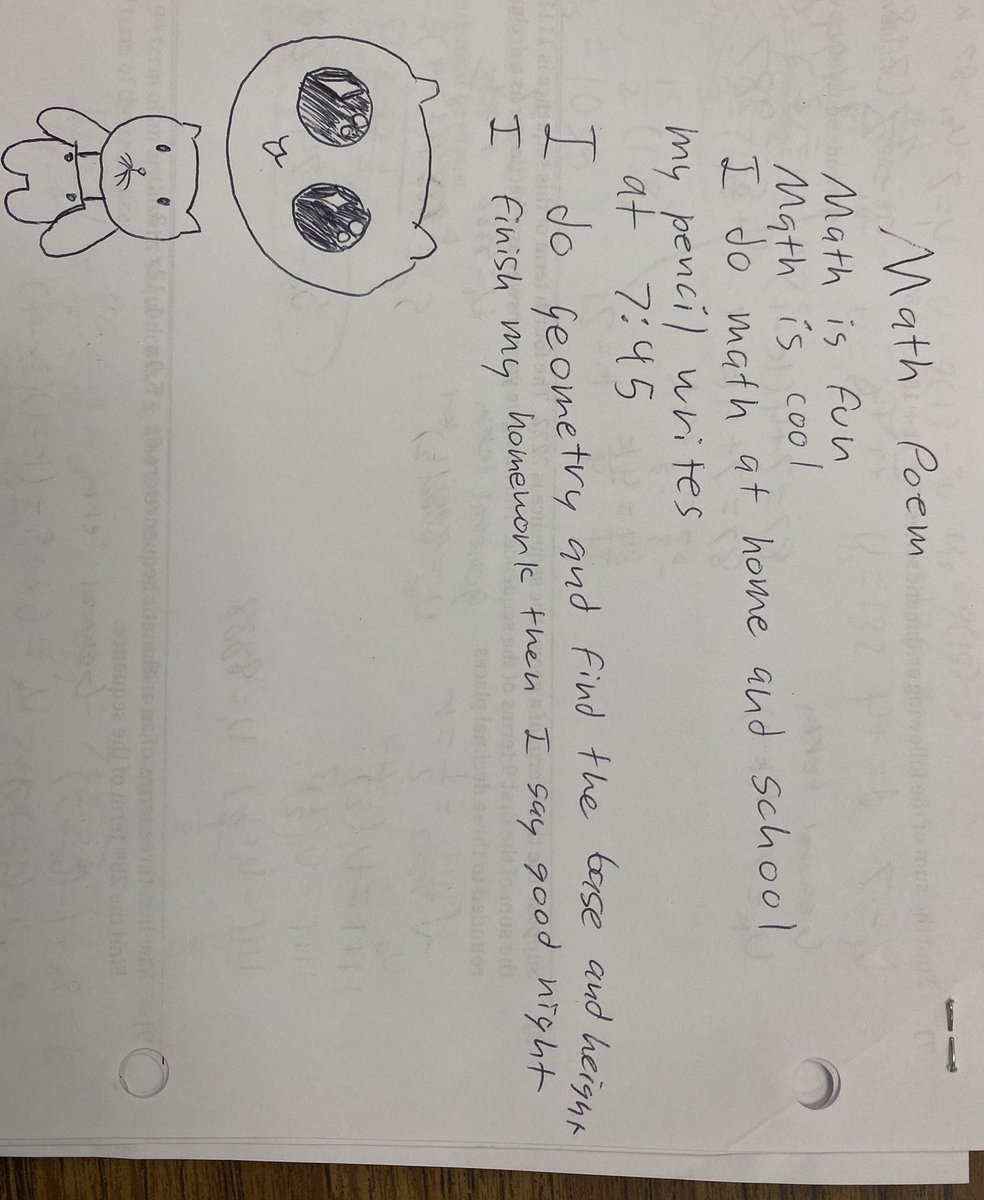 Math Poem
Math is fun
Math is cool
I do math at home and school
my pencil writes
at 7:45
I do geometry and find the base and height
I finish my homework then I say good night